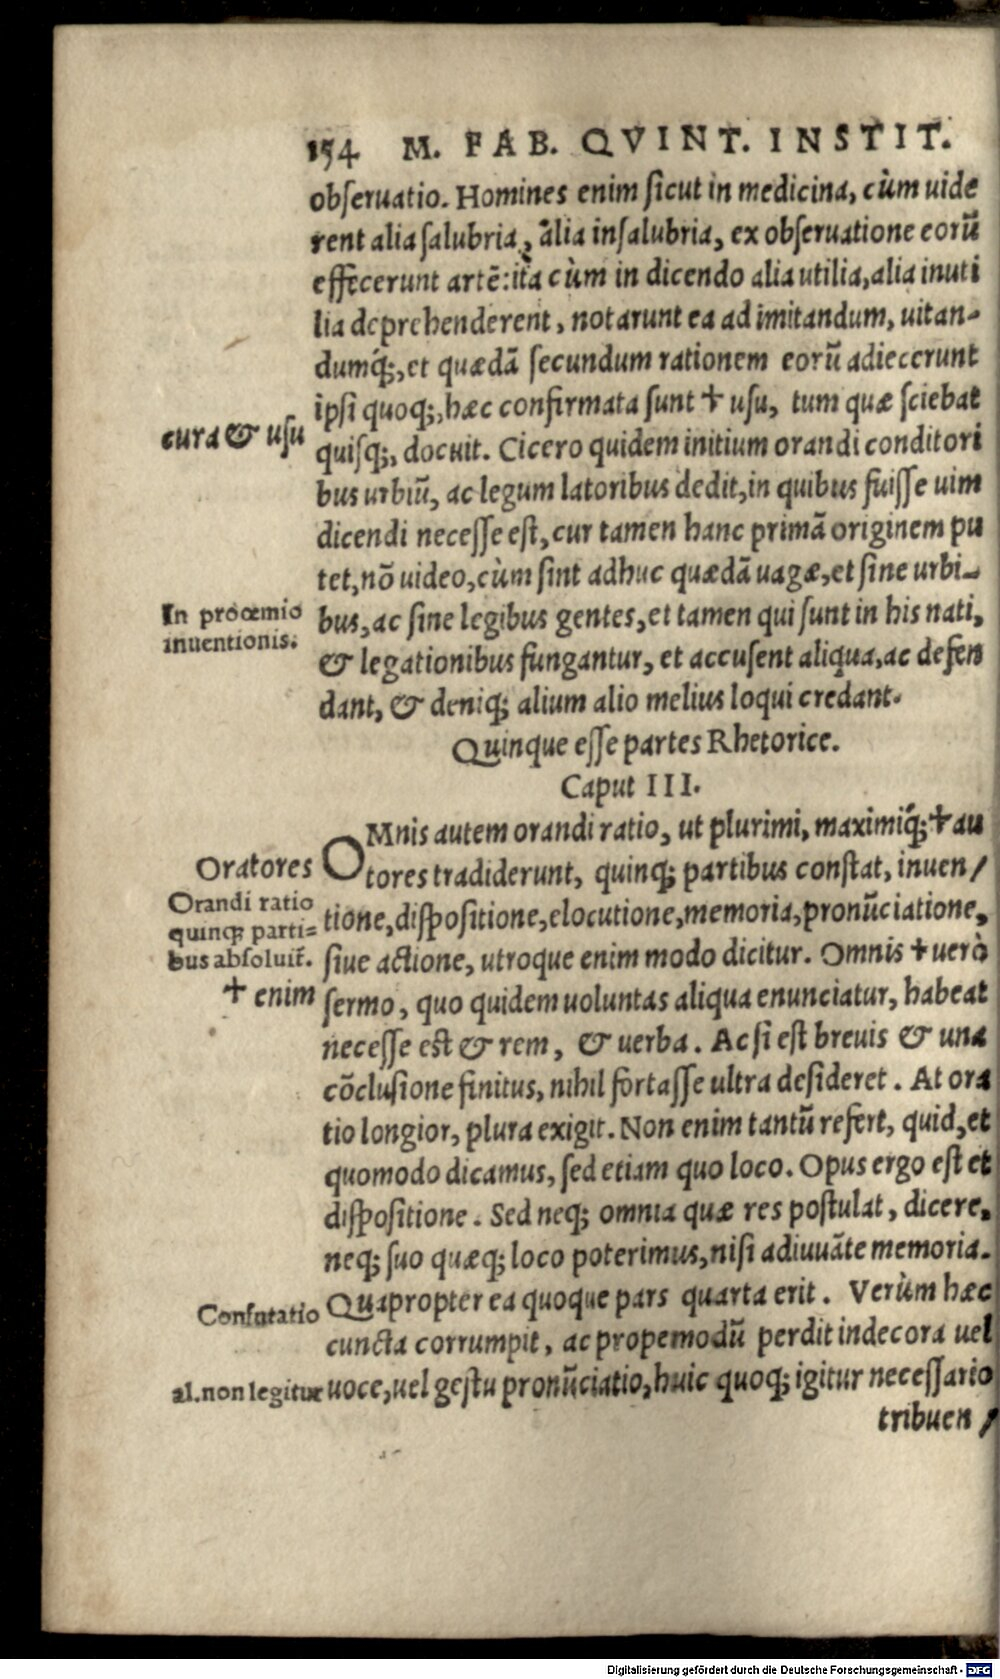 154 M. FAB. QVINT. INSTIT.
obſeruatio. Homines enim ſicut in medicina, cùm uide
rent alia ſalubria, alia inſalubria, ex obſeruatione eorũ
effecerunt artẽ: ita cùm in dicendo alia utilia, alia inuti
lia deprehenderent, notarunt ea ad imitandum, uitan-
dumq́;, et quædã ſecundum rationem eorũ adiecerunt
ipſi quoq;, hæc confirmata ſunt + uſu, tum quæ ſciebat
cura & uſu
quiſq;, docuit. Cicero quidem initium orandi conditori
bus urbiũ, ac legum latoribus dedit, in quibus fuiſſe uim
dicendi neceſſe eſt, cur tamen hanc primã originem pu
tet, nõ uideo, cùm ſint adhuc quædã uagæ, et ſine urbi-
In proœmio
inuentionis.
bus, ac ſine legibus gentes, et tamen qui ſunt in his nati,
& legationibus fungantur, et accuſent aliqua, ac defen
dant, & deniq; alium alio melius loqui credant.
Quinque eſſe partes Rhetorice.
Caput III.
OMnis autem orandi ratio, ut plurimi, maximiq́; + au
Oratores
tores tradiderunt, quinq; partibus conſtat, inuen/
Orandi ratio
quinq; parti=
bus abſoluit̃.
tione, diſpoſitione, elocutione, memoria, pronũciatione,
ſiue actione, utroque enim modo dicitur. Omnis + uerò
+ enim
ſermo, quo quidem uoluntas aliqua enunciatur, habeat
neceſſe eſt & rem, & uerba. Ac ſi eſt breuis & una
cõcluſione finitus, nihil fortaſſe ultra deſideret. At ora
tio longior, plura exigit. Non enim tantũ refert, quid, et
quomodo dicamus, ſed etiam quo loco. Opus ergo eſt et
diſpoſitione. Sed neq; omnia quæ res poſtulat, dicere,
neq; ſuo quæq; loco poterimus, niſi adiuuãte memoria.
Confutatio
Quapropter ea quoque pars quarta erit. Verùm hæc
cuncta corrumpit, ac propemodũ perdit indecora uel
al. non legitur
uoce, uel geſtu pronũciatio, huic quoq; igitur neceſſario
tribuen/
Digitalisierung gefördert durch die Deutsche Forschungsgemeinschaft - DFG